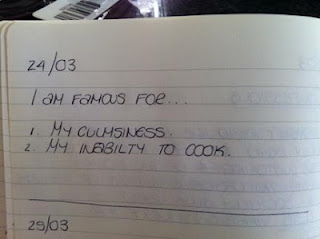 24/03
I AM FAMOUS FOR...
1. MY CULMSINESS.
2. MY INABILTY TO COOK.
25/03